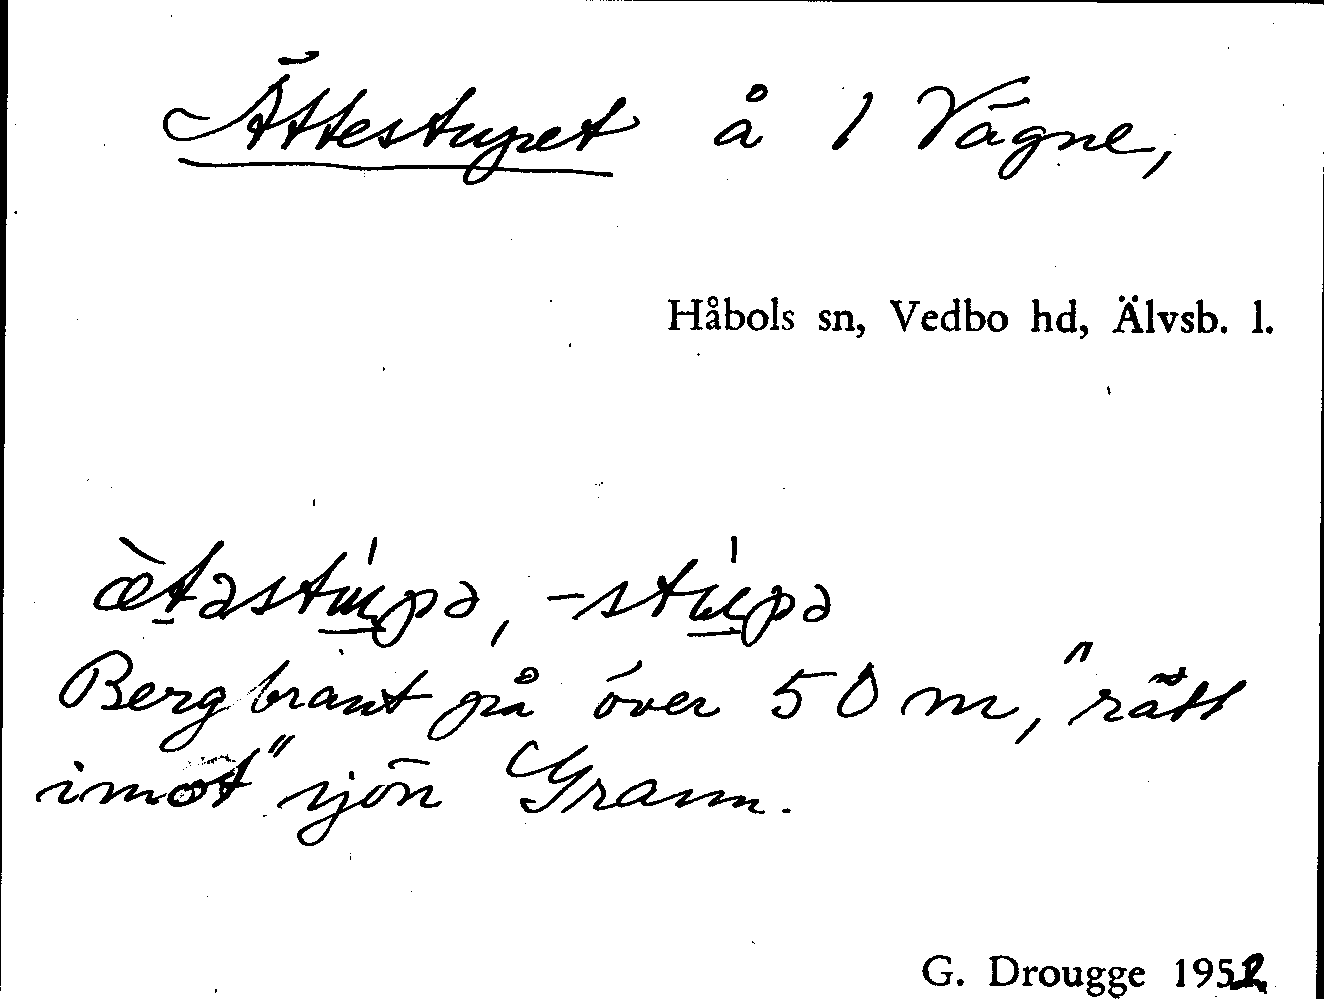 Ättestupet å 1 Vägne,
Håbols sn, Vedbo hd, Älvsb. l.
æ̀təstú̠pə, -stú̠pə
Bergbrant på över 50 m, "rätt
imot" sjön Grann.
G. Drougge 1952